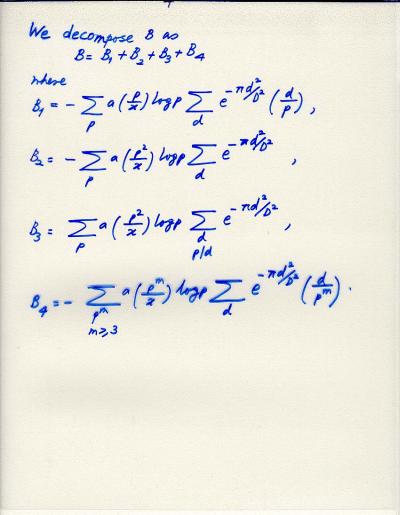 We decompose B as
B = B₁ + B₂ + B₃ + B₄
where
B₁ = - ∑_p a(p/x) log p ∑_d e^{-πd²/D²} (d/p),
B₂ = - ∑_p a(p²/x) log p ∑_d e^{-πd²/D²},
B₃ = ∑_p a(p²/x) log p ∑_{d, p|d} e^{-πd²/D²},
B₄ = - ∑_{p^m, m≥3} a(p^m/x) log p ∑_d e^{-πd²/D²} (d/p^m).